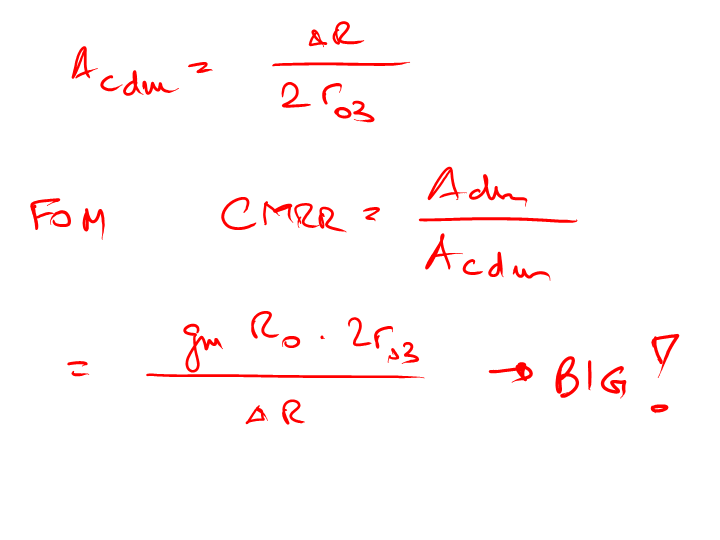 Acdm = ΔR / 2ro3
FOM CMRR = Adm / Acdm
= gm Ro · 2ro3 / ΔR → BIG!